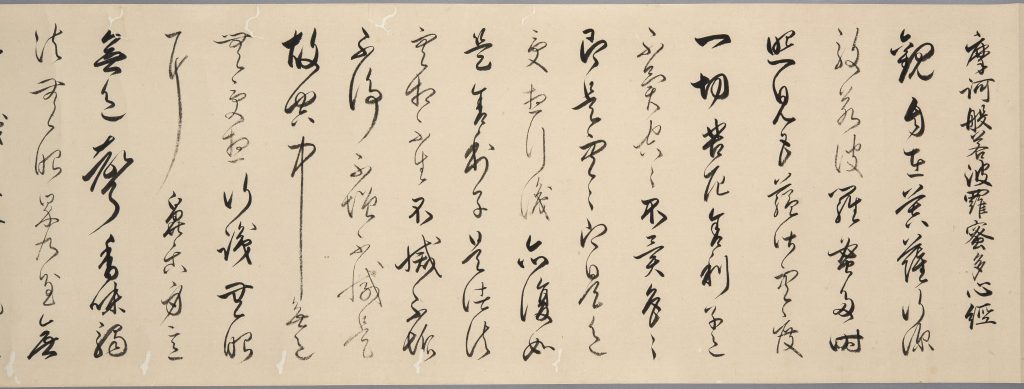 摩訶般若波羅蜜多心經
觀自在菩薩行深
般若波羅蜜多時
照見五蘊皆空度
一切苦厄舍利子色
不異空〻不異色〻
即是空〻即是色
受想行識亦復如
是舍利子是諸法
空相不生不滅不垢
不淨不增不減是
故空中無色
無受想行識無眼
耳鼻舌身意
無色聲香味觸
法無眼界乃至無